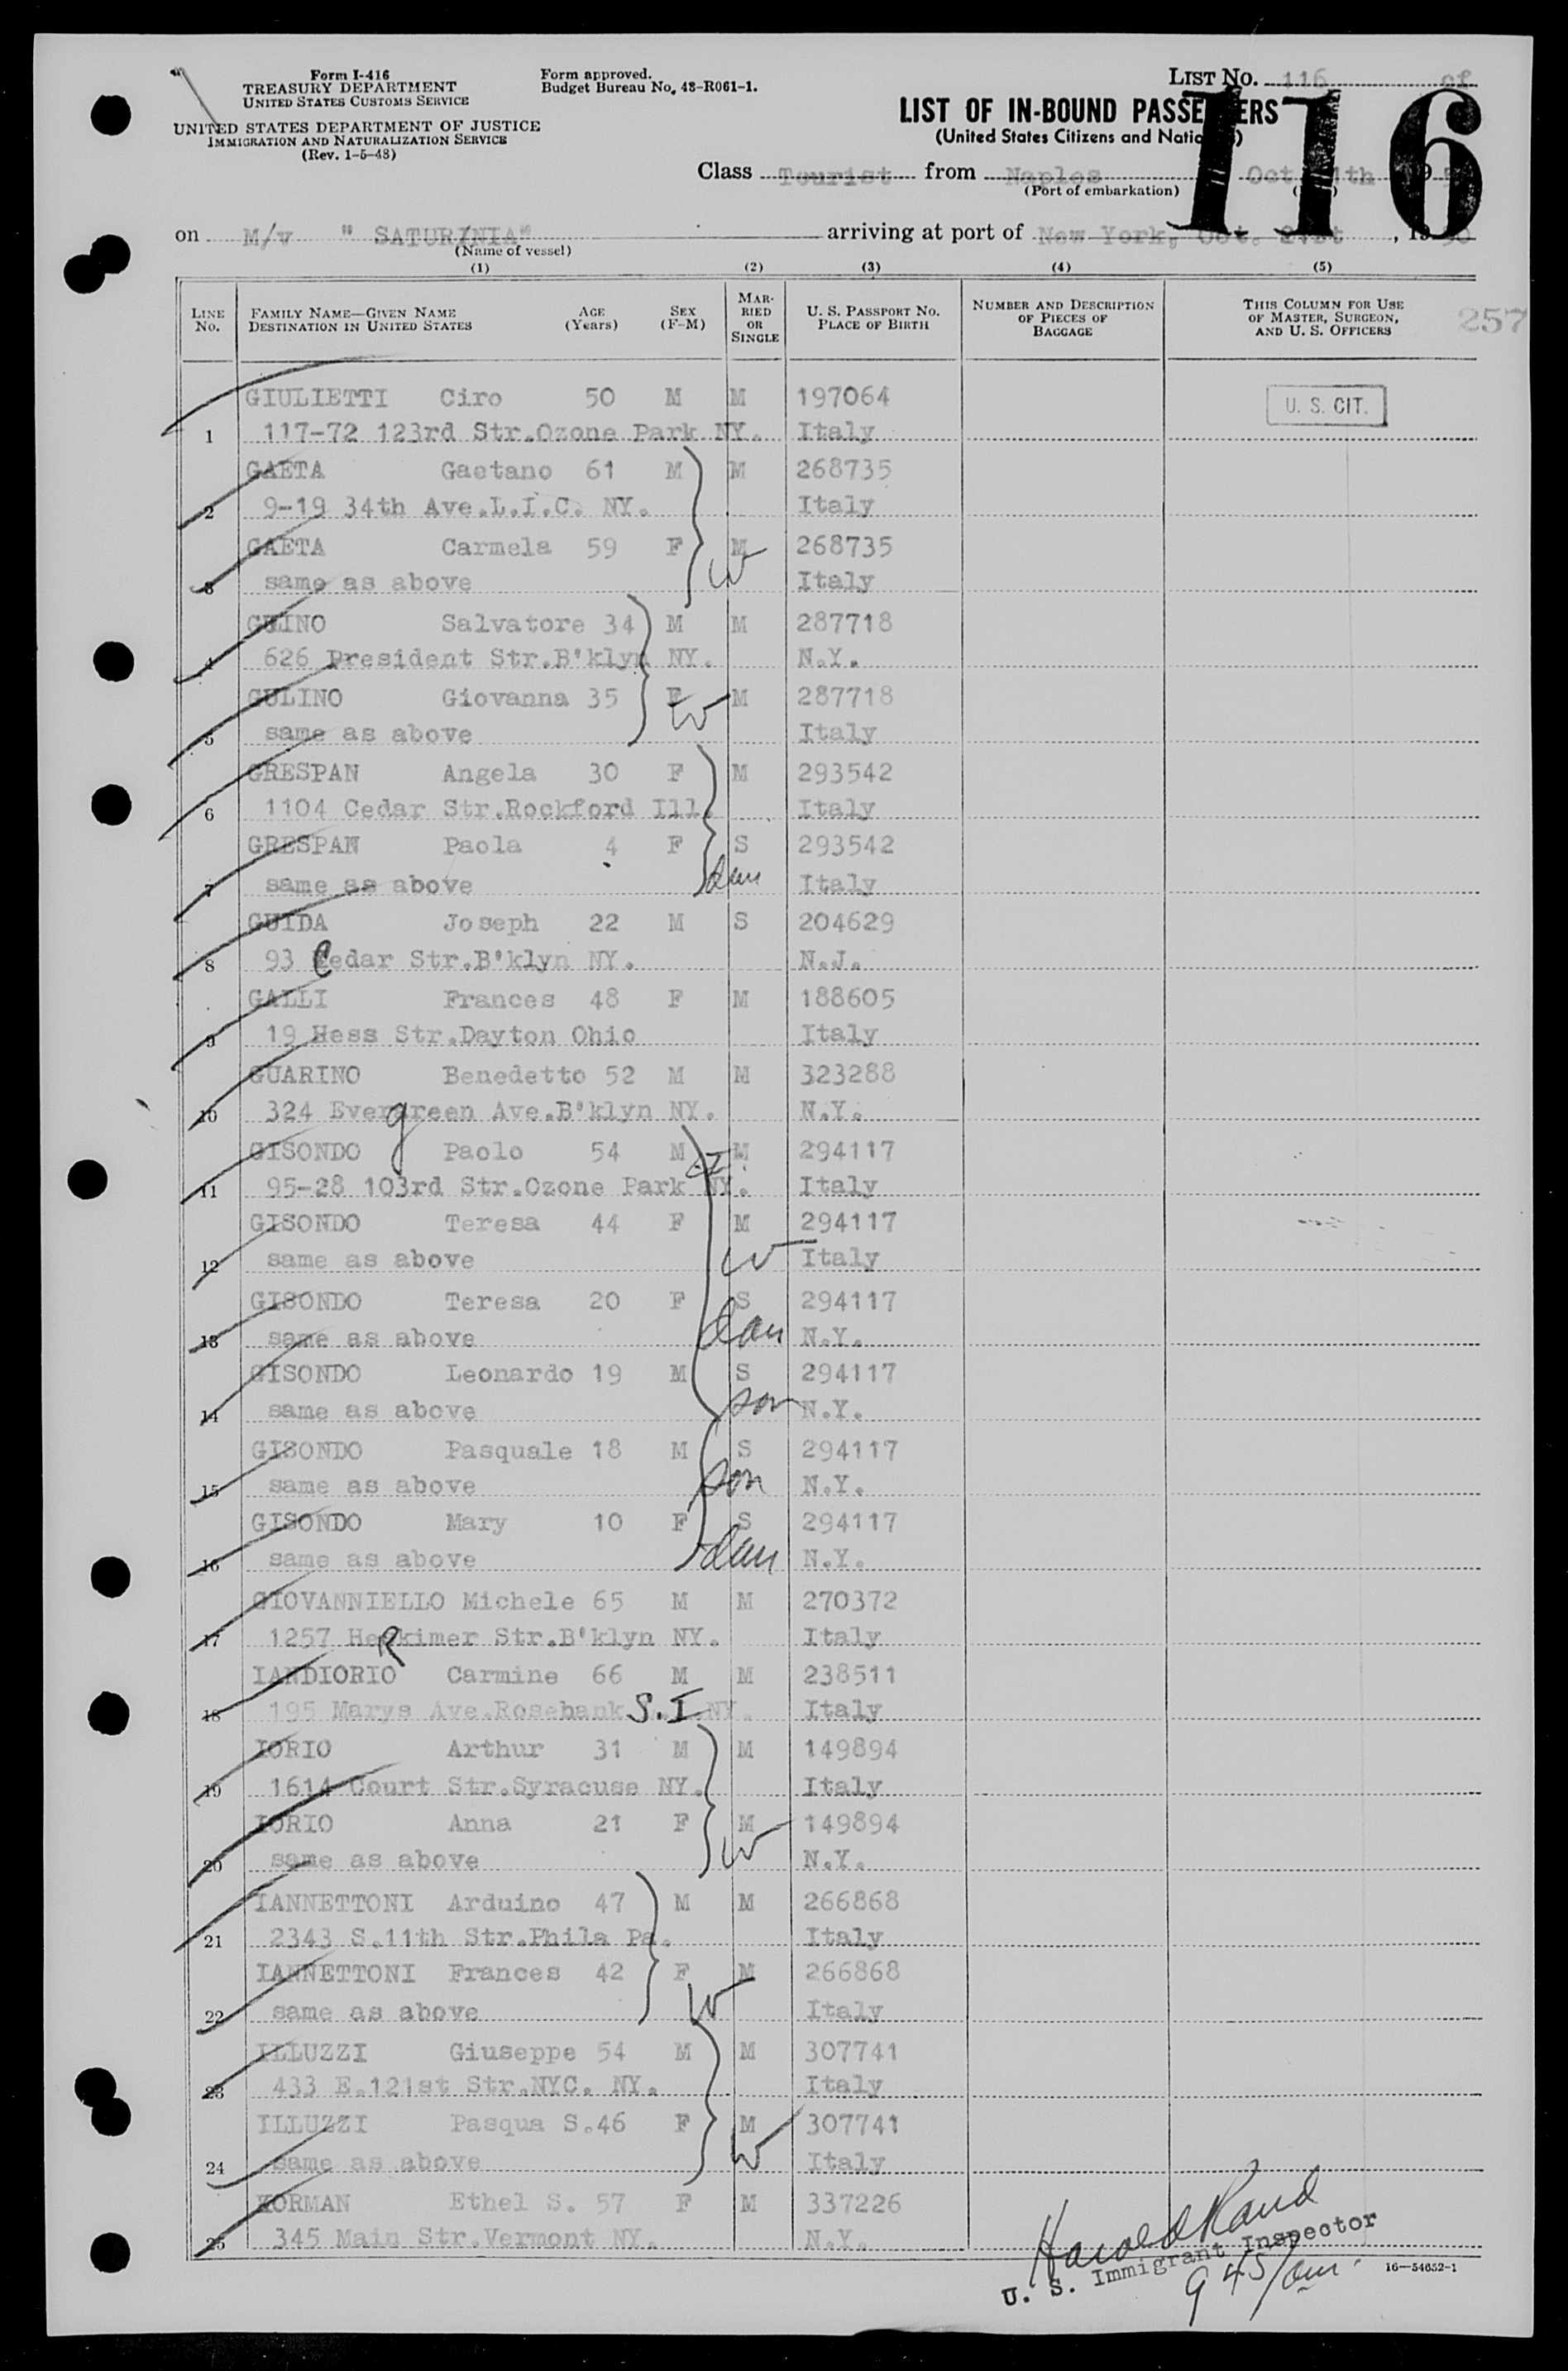 Form I-416
TREASURY DEPARTMENT
UNITED STATES CUSTOMS SERVICE
UNITED STATES DEPARTMENT OF JUSTICE
IMMIGRATION AND NATURALIZATION SERVICE
(Rev. 1-5-48)
Form approved.
Budget Bureau No. 43-R061-1.
LIST No. 116 of
116
LIST OF IN-BOUND PASSENGERS
(United States Citizens and Nationals)
Class Tourist from Naples Oct
(Port of embarkation)
on M/v " SATURNIA" arriving at port of New York, Oct. 21st, 1950
(Name of vessel)
(1) (2) (3) (4) (5)
LINE No. FAMILY NAME—GIVEN NAME DESTINATION IN UNITED STATES AGE (Years) SEX (F-M) MARRIED OR SINGLE U. S. PASSPORT No. PLACE OF BIRTH NUMBER AND DESCRIPTION OF PIECES OF BAGGAGE THIS COLUMN FOR USE OF MASTER, SURGEON, AND U. S. OFFICERS
257
GIULIETTI Ciro 50 M M 197064 U. S. CIT.
1 117-72 123rd Str.Ozone Park NY. Italy
GAETA Gaetano 61 M M 268735
2 9-19 34th Ave.L.I.C. NY. Italy
GAETA Carmela 59 F M 268735
3 same as above W Italy
GULINO Salvatore 34 M M 287718
4 626 President Str.B'klyn NY. N.Y.
GULINO Giovanna 35 F M 287718
5 same as above W Italy
GRESPAN Angela 30 F M 293542
6 1104 Cedar Str.Rockford Ill. Italy
GRESPAN Paola 4 F S 293542
7 same as above dau Italy
GUIDA Joseph 22 M S 204629
8 93 Cedar Str.B'klyn NY. N.J.
GALLI Frances 48 F M 188605
9 19 Hess Str.Dayton Ohio Italy
GUARINO Benedetto 52 M M 323288
10 324 Evergreen Ave.B'klyn NY. N.Y.
GISONDO Paolo 54 M M 294117
11 95-28 103rd Str.Ozone Park NY. Italy
GISONDO Teresa 44 F M 294117
12 same as above W Italy
GISONDO Teresa 20 F S 294117
13 same as above dau N.Y.
GISONDO Leonardo 19 M S 294117
14 same as above son N.Y.
GISONDO Pasquale 18 M S 294117
15 same as above son N.Y.
GISONDO Mary 10 F S 294117
16 same as above dau N.Y.
GIOVANNIELLO Michele 65 M M 270372
17 1257 HeRkimer Str.B'klyn NY. Italy
IANDIORIO Carmine 66 M M 238511
18 195 Marys Ave.Rosebank S.I. NY. Italy
IORIO Arthur 31 M M 149894
19 1614 Court Str.Syracuse NY. Italy
IORIO Anna 21 F M 149894
20 same as above W N.Y.
IANNETTONI Arduino 47 M M 266868
21 2343 S.11th Str.Phila Pa. Italy
IANNETTONI Frances 42 F M 266868
22 same as above W Italy
ILLUZZI Giuseppe 54 M M 307741
23 433 E.121st Str.NYC. NY. Italy
ILLUZZI Pasqua S.46 F M 307741
24 same as above W Italy
KORMAN Ethel S. 57 F M 337226
25 345 Main Str.Vermont NY. N.Y.
Harold Rand
U. S. Immigrant Inspector
945/am.
16—54652-1